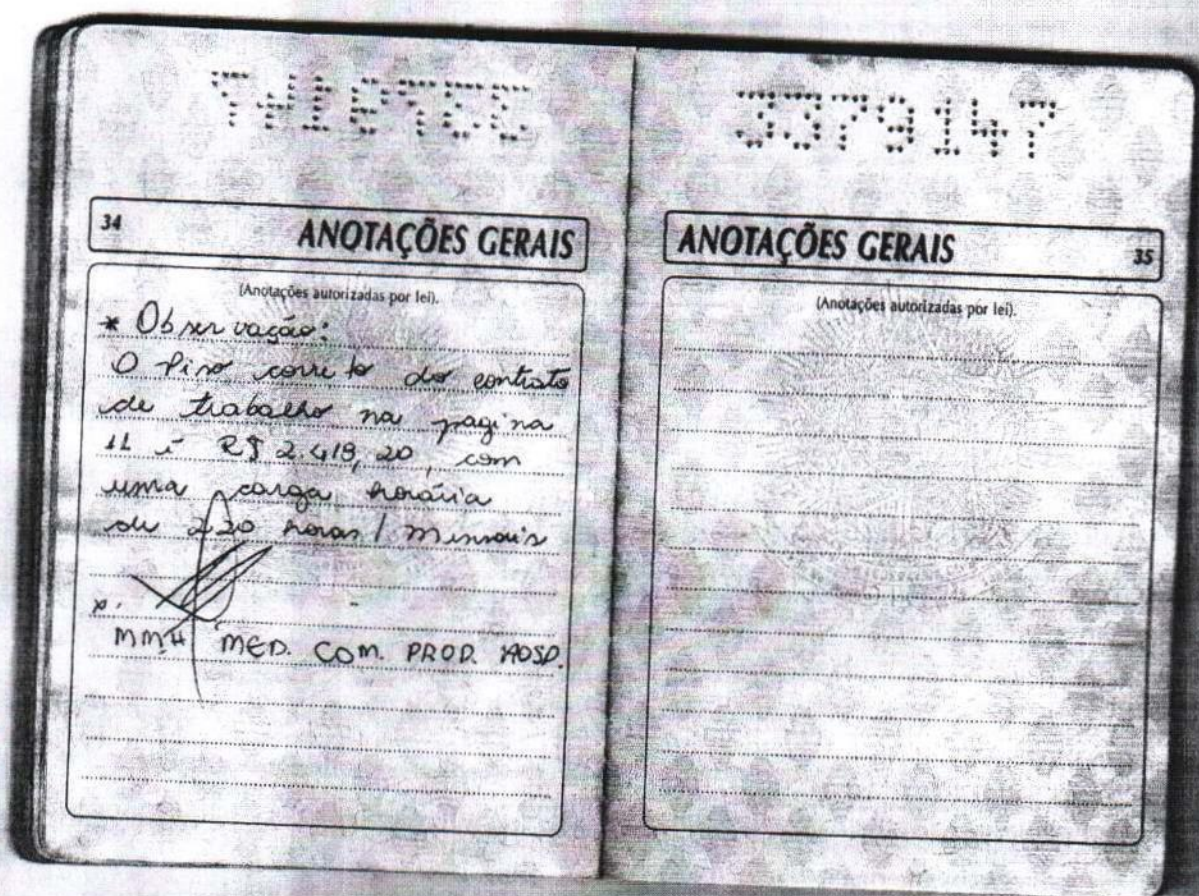 3379147
34
ANOTAÇÕES GERAIS
(Anotações autorizadas por lei).
* Observação:
O Piso correto do contrato
de trabalho na pagina
11 é R$ 2.419,20, com
uma carga horária
de 220 horas / Mensais
x.
MMH MED. COM. PROD. HOSP.
3379147
ANOTAÇÕES GERAIS
35
(Anotações autorizadas por lei).